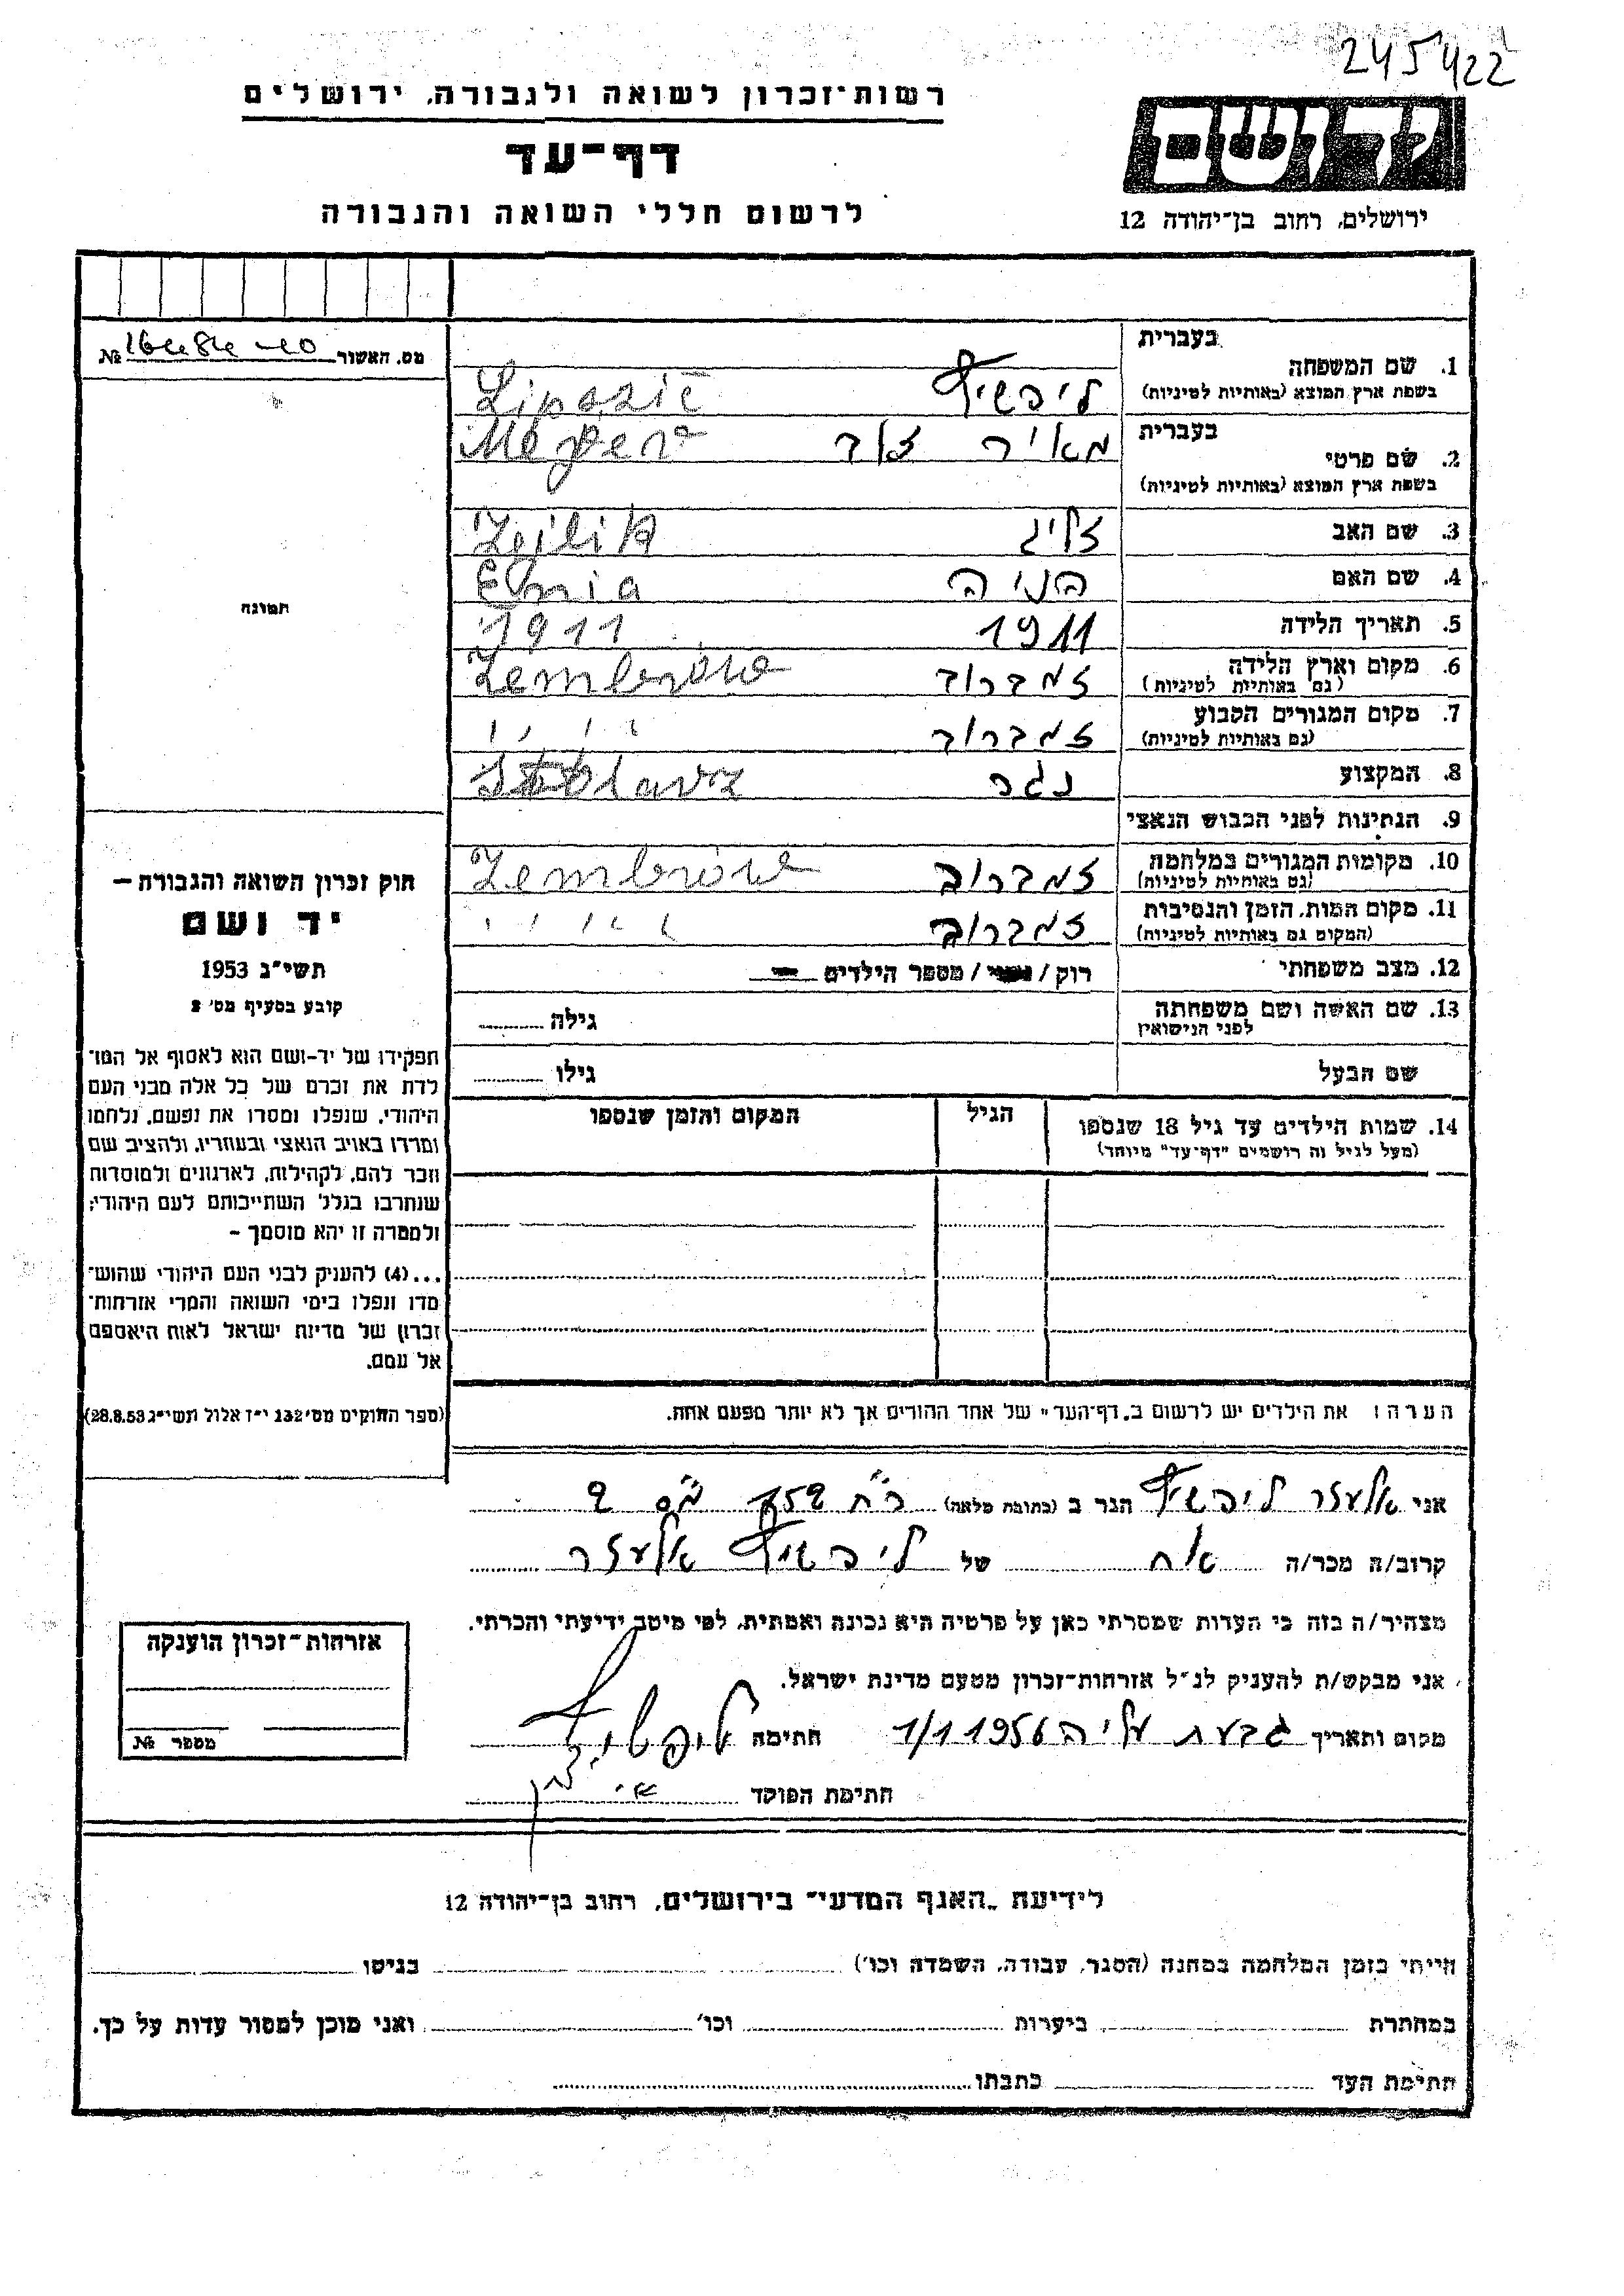 245422
רשות־זכרון לשואה ולגבורה, ירושלים
דף־עד
לרשום חללי השואה והגבורה
יד ושם
ירושלים, רחוב בן־יהודה 12
מס. האשור №
בעברית
1. שם המשפחה
בשפת ארץ המוצא (באותיות לטיניות)
ליפשיץ Lipszic
בעברית
2. שם פרטי
בשפת ארץ המוצא (באותיות לטיניות)
מאיר דוד Mejer
3. שם האב זליג Zejlik
4. שם האם הניה
5. תאריך הלידה 1911 1911
6. מקום וארץ הלידה
(גם באותיות לטיניות)
זמברוב Zembrów
7. מקום המגורים הקבוע
(גם באותיות לטיניות)
זמברוב " "
8. המקצוע נגר
9. הנתינות לפני הכבוש הנאצי
10. מקומות המגורים במלחמה
(גם באותיות לטיניות)
זמברוב Zembrów
11. מקום המות, הזמן והנסיבות
(המקום גם באותיות לטיניות)
זמברוב " "
12. מצב משפחתי רוק / נשוי / מספר הילדים —
13. שם האשה ושם משפחתה
לפני הנישואין
גילה
שם הבעל גילו
14. שמות הילדים עד גיל 18 שנספו
(מעל לגיל זה רושמים "דף־עד" מיוחד)
הגיל
המקום והזמן שנספו
הערה: את הילדים יש לרשום ב„דף־העד" של אחד ההורים אך לא יותר מפעם אחת.
תמונה
חוק זכרון השואה והגבורה —
יד ושם
תשי"ג 1953
קובע בסעיף מס' 2
תפקידו של יד-ושם הוא לאסוף אל המו־
לדת את זכרם של כל אלה מבני העם
היהודי, שנפלו ומסרו את נפשם, נלחמו
ומרדו באויב הנאצי ובעוזריו, ולהציב שם
וזכר להם, לקהילות, לארגונים ולמוסדות
שנחרבו בגלל השתייכותם לעם היהודי;
ולמטרה זו יהא מוסמך –
...(4) להעניק לבני העם היהודי שהוש־
מדו ונפלו בימי השואה והמרי אזרחות־
זכרון של מדינת ישראל לאות היאספם
אל עמם.
(ספר החוקים מס' 132 י"ז אלול תשי"ג 28.8.53)
אני אלעזר ליפשיץ הגר ב (כתובת מלאה)
קרוב/ה מכר/ה אח של ליפשיץ אלעזר
מצהיר/ה בזה כי העדות שמסרתי כאן על פרטיה היא נכונה ואמתית, לפי מיטב ידיעתי והכרתי.
אני מבקש/ת להעניק לנ"ל אזרחות־זכרון מטעם מדינת ישראל.
מקום ותאריך גבעת עליה 1/1 1956 חתימה ליפשיץ
חתימת הפוקד
אזרחות־זכרון הוענקה
מספר №
לידיעת „האגף המדעי" בירושלים, רחוב בן־יהודה 12
הייתי בזמן המלחמה במחנה (הסגר, עבודה, השמדה וכו') בגיטו
במחתרת ביערות וכו' ואני מוכן למסור עדות על כך.
חתימת העד כתבתו